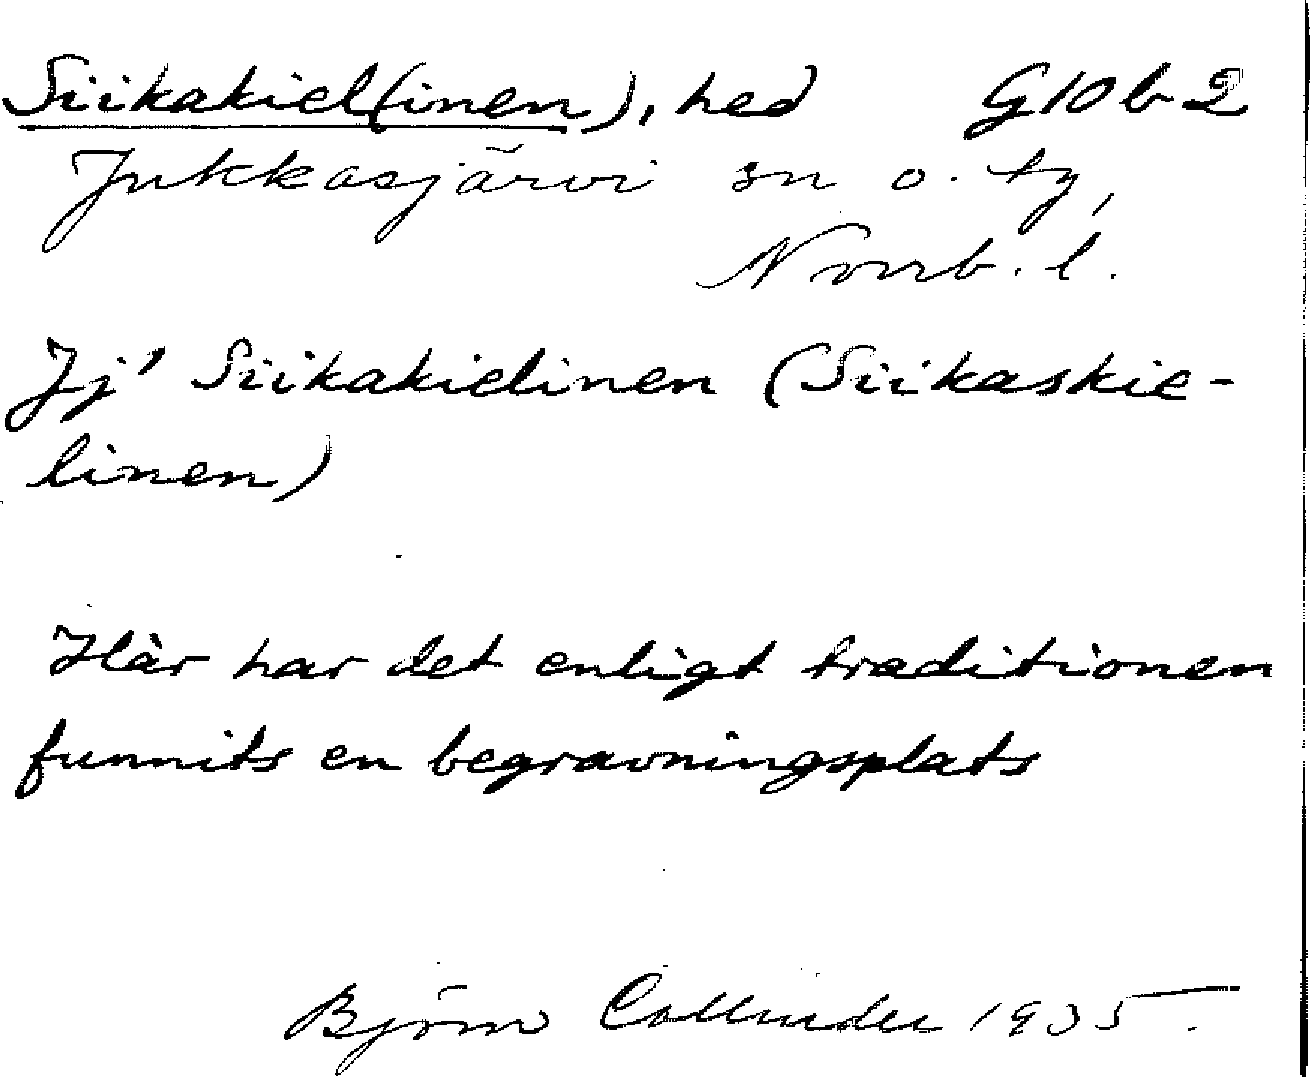 Siikakiel(inen), hed G10b2
Jukkasjärvi sn o. tg,
Norrb. l.
Jj' Siikakielinen (Siikaskie-
linen)
Här har det enligt traditionen
funnits en begravningsplats
Björn Collinder 1935.